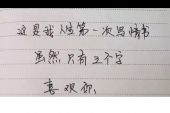 这是我人生第一次写情书
虽然只有三个字
喜欢你